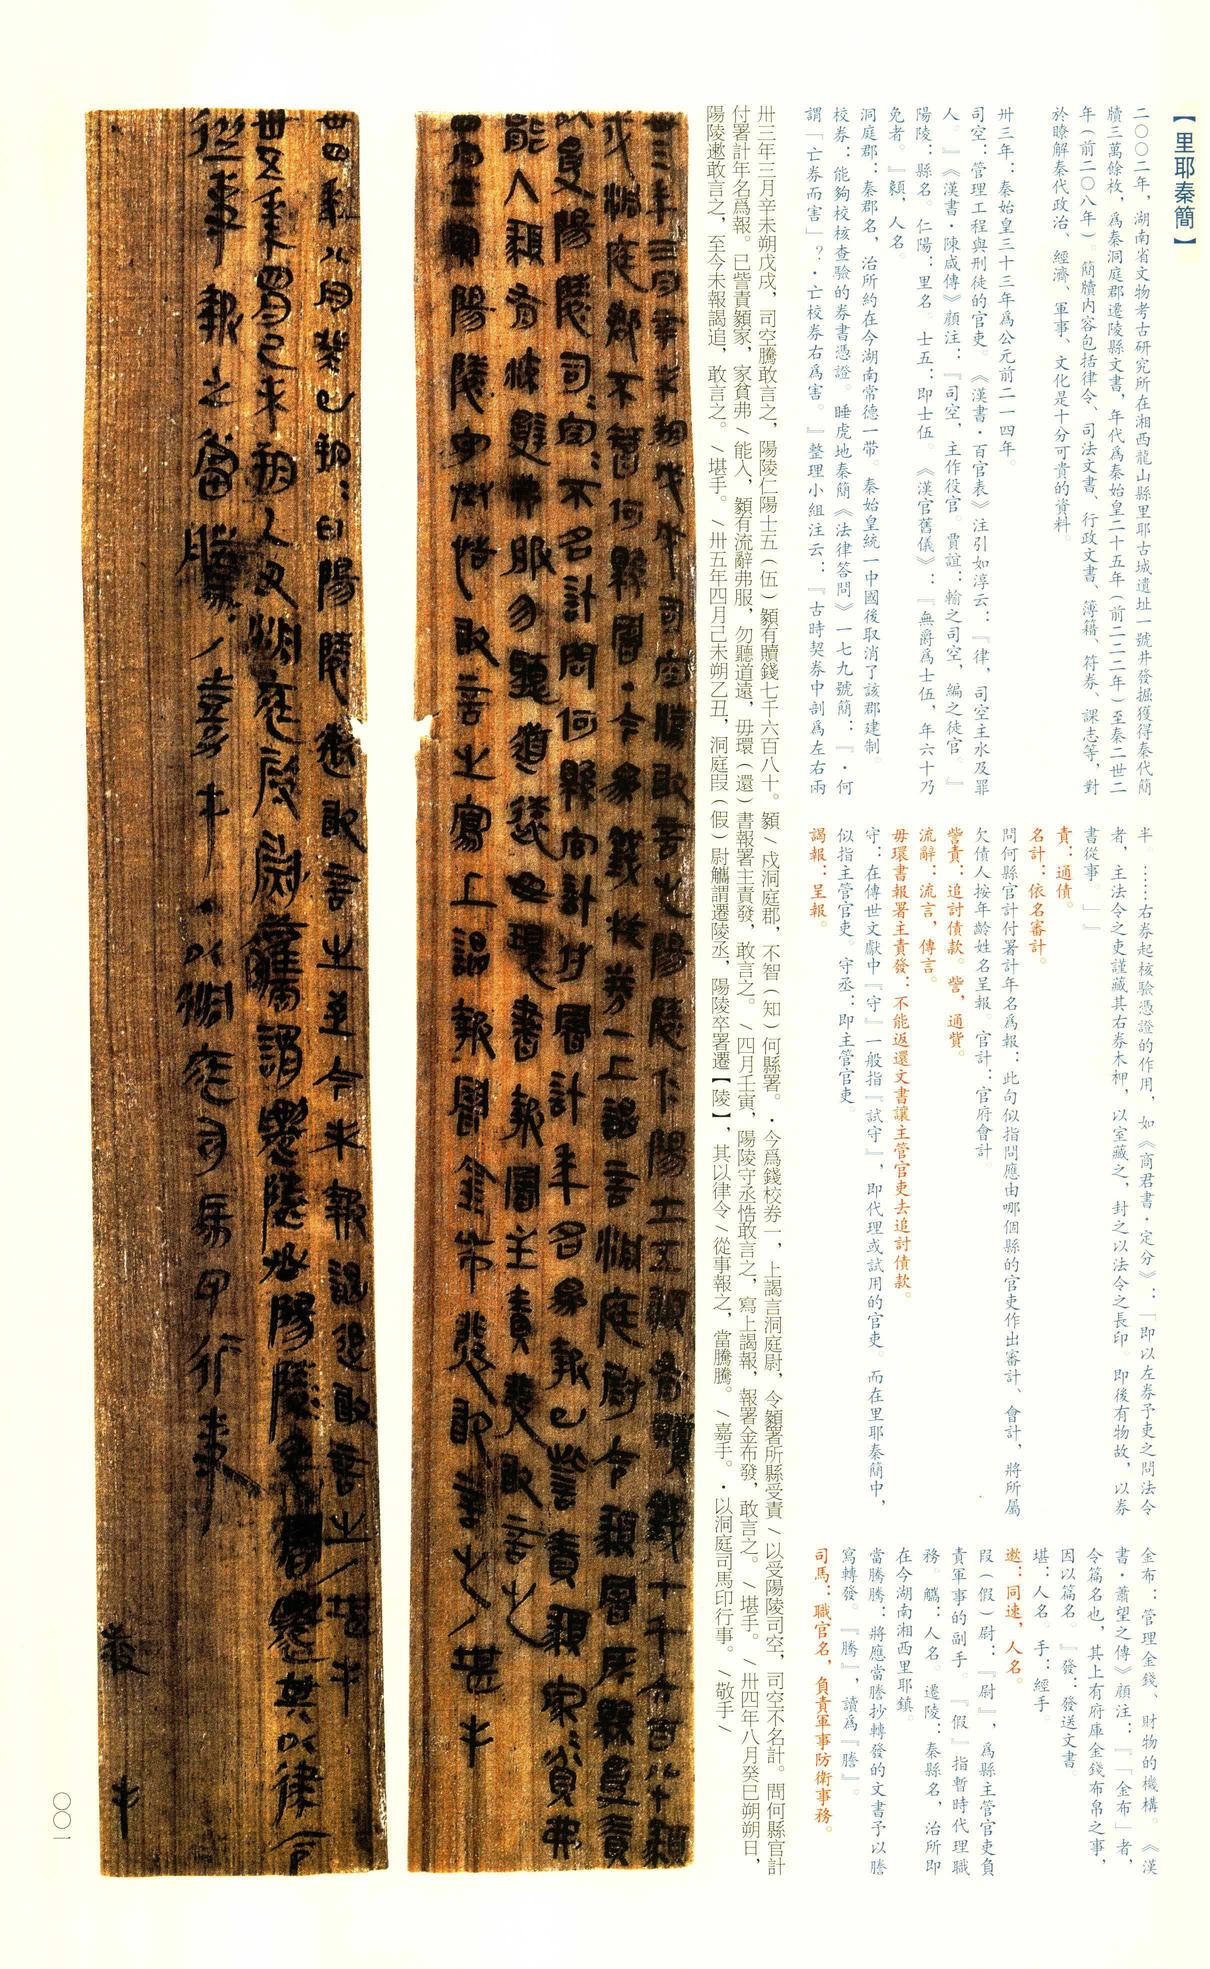 【里耶秦簡】
二〇〇二年，湖南省文物考古研究所在湘西龍山縣里耶古城遺址一號井發掘獲得秦代簡
牘三萬餘枚，爲秦洞庭郡遷陵縣文書，年代爲秦始皇二十五年（前二二二年）至秦二世二
年（前二〇八年）。簡牘內容包括律令、司法文書、行政文書、簿籍、符券、課志等，對
於瞭解秦代政治、經濟、軍事、文化是十分可貴的資料。
卅三年：秦始皇三十三年爲公元前二一四年。
司空：管理工程與刑徒的官吏。《漢書·百官表》注引如淳云：『律，司空主水及罪
人。』《漢書·陳咸傳》顔注：『司空，主作役官。賈誼：輸之司空，編之徒官。』
陽陵：縣名。仁陽：里名。士五：即士伍。《漢官舊儀》：『無爵爲士伍，年六十乃
免者。』顡，人名。
洞庭郡：秦郡名，治所約在今湖南常德一帶。秦始皇統一中國後取消了該郡建制。
校券：能夠校核查驗的券書憑證。睡虎地秦簡《法律答問》一七九號簡：『·何
謂「亡券而害」？·亡校券右爲害。』整理小組注云：『古時契券中剖爲左右兩
半。……右券起核驗憑證的作用，如《商君書·定分》：「即以左券予吏之問法令
者，主法令之吏謹藏其右券木柙，以室藏之，封之以法令之長印。即後有物故，以券
書從事。」』
責：通債。
名計：依名審計。
問何縣官計付署計年名爲報：此句似指問應由哪個縣的官吏作出審計、會計，將所屬
欠債人按年齡姓名呈報。官計：官府會計。
訾責：追討債款。訾，通貲。
流辭：流言，傳言。
毋環書報署主責發：不能返還文書讓主管官吏去追討債款。
守：在傳世文獻中『守』一般指『試守』，即代理或試用的官吏。而在里耶秦簡中，
似指主管官吏。守丞：即主管官吏。
謁報：呈報。
金布：管理金錢、財物的機構。《漢
書·蕭望之傳》顔注：『「金布」者，
令篇名也，其上有府庫金錢布帛之事，
因以篇名。』發：發送文書。
堪：人名。手：經手。
遬：同速，人名。
叚（假）尉：『尉』，爲縣主管官吏負
責軍事的副手。『假』指暫時代理職
務。觿：人名。遷陵：秦縣名，治所即
在今湖南湘西里耶鎮。
當騰騰：將應當謄抄轉發的文書予以謄
寫轉發。『騰』，讀爲『謄』。
司馬：職官名，負責軍事防衛事務。
卅三年三月辛未朔戊戌，司空騰敢言之，陽陵仁陽士五（伍）顡有贖錢七千六百八十。顡＼戍洞庭郡，不智（知）何縣署。·今爲錢校券一，上謁言洞庭尉，令顡署所縣受責＼以受陽陵司空，司空不名計。問何縣官計
付署計年名爲報。已訾責顡家，家貧弗＼能入，顡有流辭弗服，勿聽道遠，毋環（還）書報署主責發，敢言之。＼四月壬寅，陽陵守丞恬敢言之，寫上謁報，報署金布發，敢言之。＼堪手。＼卅四年八月癸巳朔朔日，
陽陵遬敢言之，至今未報謁追，敢言之。＼堪手。＼卅五年四月己未朔乙丑，洞庭叚（假）尉觿謂遷陵丞，陽陵卒署遷【陵】，其以律令＼從事報之，當騰騰。＼嘉手。·以洞庭司馬印行事。＼敬手＼
卅三年三月辛未朔戊戌司空騰敢言之陽陵仁陽士五顡有贖錢七千六百八十顡
戍洞庭郡不智何縣署·今爲錢校券一上謁言洞庭尉令顡署所縣受責
以受陽陵司=空=不名計問何縣官計付署計年名爲報已訾責顡家=貧弗
能入顡有流辭弗服勿聽道遠毋環書報署主責發敢言之
四月壬寅陽陵守丞恬敢言之寫上謁報=署金布發敢言之/堪手
卅四年八月癸巳朔=日陽陵遬敢言之至今未報謁追敢言之/堪手
卅五年四月己未朔乙丑洞庭叚尉觿謂遷陵丞陽陵卒署遷其以律令
從事報之當騰=/嘉手·以洞庭司馬印行事
敬手
〇〇一